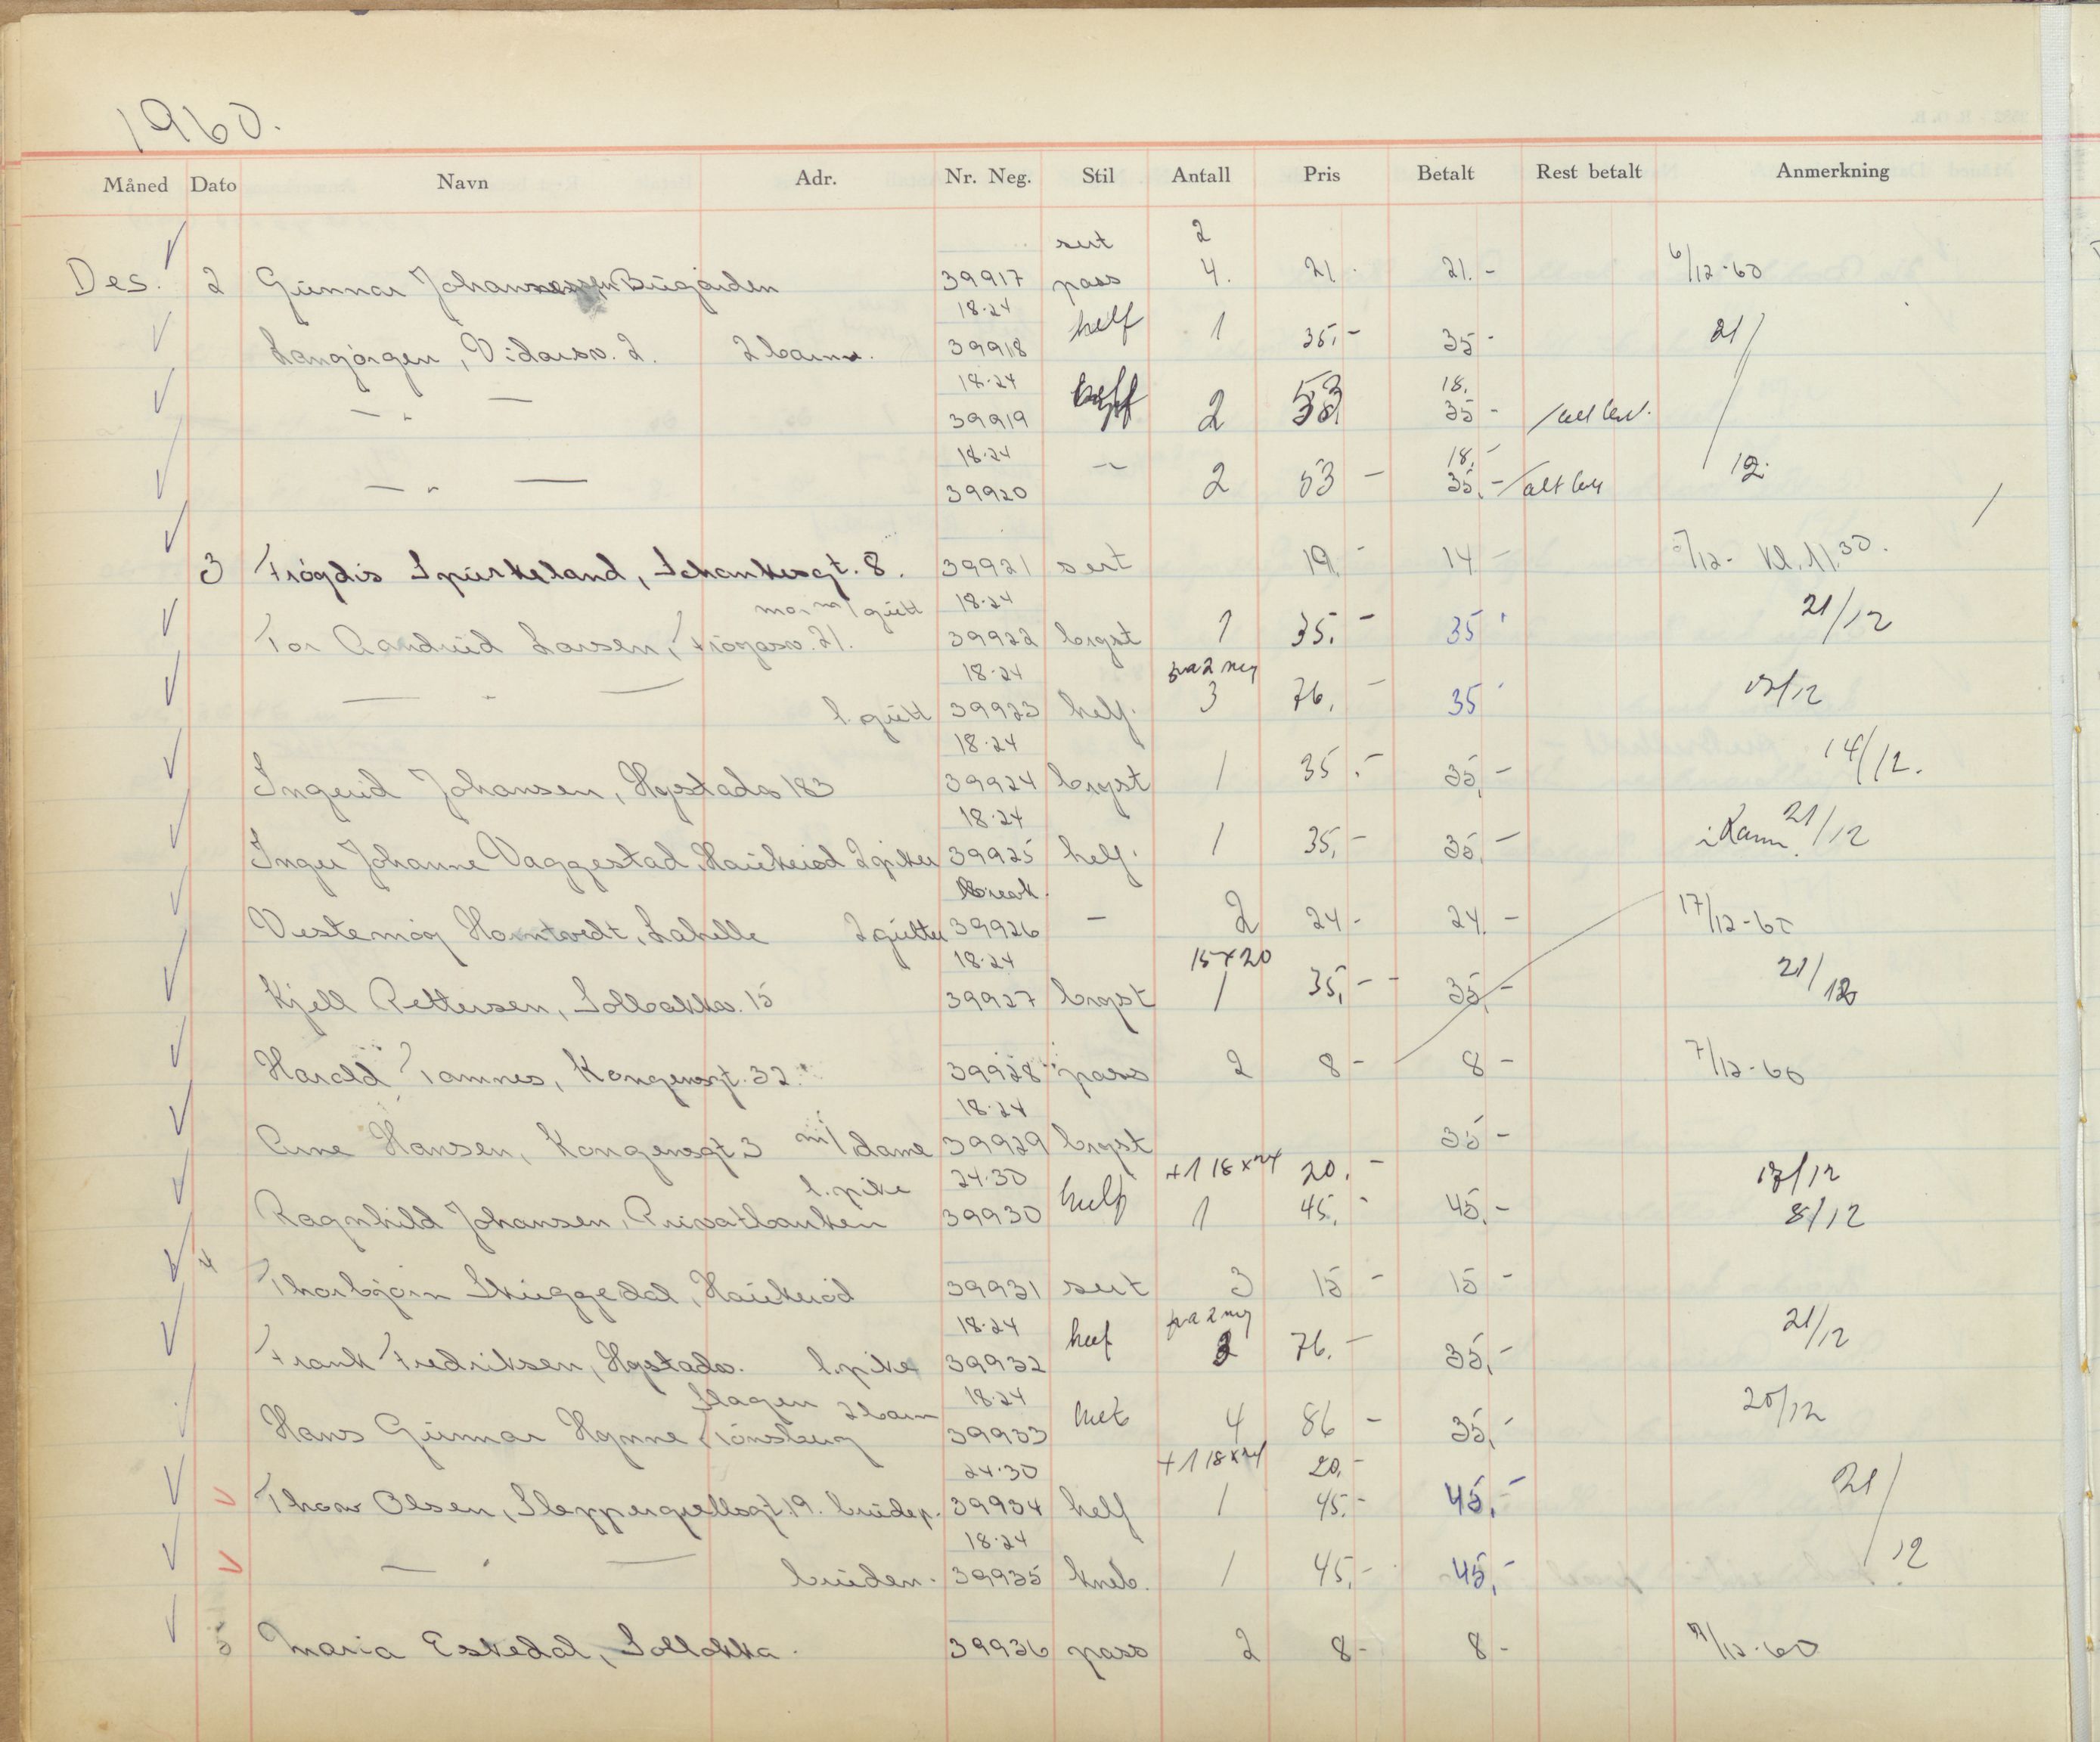 1960.
Måned Dato Navn Adr. Nr. Neg. Stil Antall Pris Betalt Rest betalt Anmerkning
sert 2
Des. 2 Gunnar Johannessen Bugården 39917 pass 4. 21.- 21.- 6/12-60
18·24
Langörgen, Vidarsv. 2. 2 barn. 39918 helf 1 35,- 35- 21/
18·24 18.
— " — 39919 2 53 35- /alt lev.
18·24 18,-
— " — 39920 — 2 53- 35,- /alt lev 12.
3 Frøydis Spurkeland, Schankesgt. 8. 39921 sert 19,- 14- /12- Kl. 11.30.
mor m/gutt 18·24
Tor Aandrud Larsen, Fröyasv. 21. 39922 bryst 1 35.- 35' 21/12
18·24 fra 2 neg
— " — l. gutt 39923 helf. 3 76,- 35'
18·24
Ingerid Johansen, Hystadv 183 39924 bryst 1 35.- 35,- 14/12.
18·24
Inger Johanne Vaggestad, Haukeröd 2 piker 39925 helf. 1 35,- 35,- i ramme 21/12
Break.
Vestemöy Homtvedt, Lahelle 2 gutter 39926 - 2 24- 24.- 17/12-60
18·24 15x20
Kjell Pettersen, Solbakkv. 15 39927 bryst 1 35,- 35,- 21/12
Harald Tamnes, Kongensgt. 32. 39928 pass 2 8- 8- 7/12-60
18·24
Arne Hansen, Kongensgt 3 m/dame 39929 bryst 35-
l. pike 24·30 +1 18x24 20.- 17/12
Ragnhild Johansen, Privatbanken 39930 helf 1 45,- 45,- 8/12
4 Thorbjörn Skuggedal, Haukeröd 39931 sert 3 15- 15-
18·24 fra 2 neg
Frank Fredriksen, Hystadv. l. pike 39932 helf 3 76.- 35,- 21/12
Slagen 2 barn 18·24
Hans Gunnar Hynne Tönsberg 39933 4 86- 35,- 20/12
24·30 +1 18x24 20,-
Thom Olsen, Sleppergrellsgt. 19. brudep. 39934 helf 1 45.- 45,- 21/
18·24
— " — bruden. 39935 kneb. 1 45,- 45,- 12
5 Maria Eskedal, Solløkka. 39936 pass 2 8- 8- 7/12-60